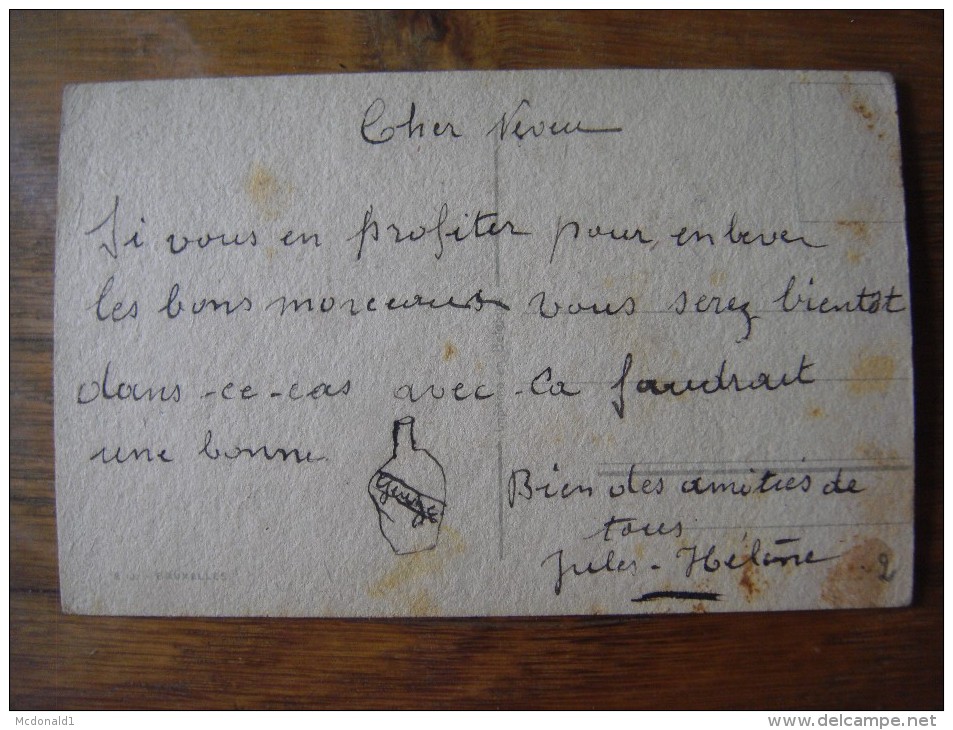 Cher Neveu
Si vous en profiter pour enlever
les bons morceaus vous serez bientôt
dans-ce-cas avec-ca faudrait
une bonne
Geuze
Bien des amitiés de
tous
Jules - Hélène
2
BRUXELLES
Mcdonald1
http://www.delcampe.net